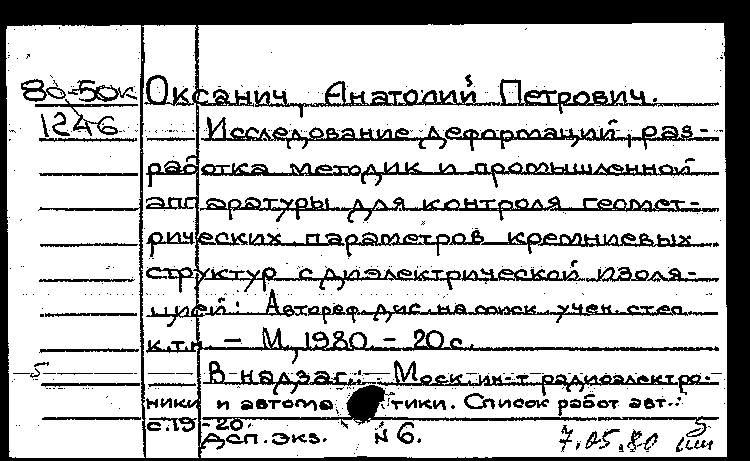 80-50к Оксанич, Анатолий Петрович.
1246 Исследование деформаций, раз-
работка методик и промышленной
аппаратуры для контроля геомет-
рических параметров кремниевых
структур с диэлектрической изоля-
цией: Автореф. дис. на соиск. учен. степ.
к.т.н. – М., 1980. – 20 с.
5 В надзаг.: Моск. ин-т радиоэлектро-
ники и автоматики. Список работ авт.:
с. 19-20.
ДСП. Экз. № 6. 7.05.80